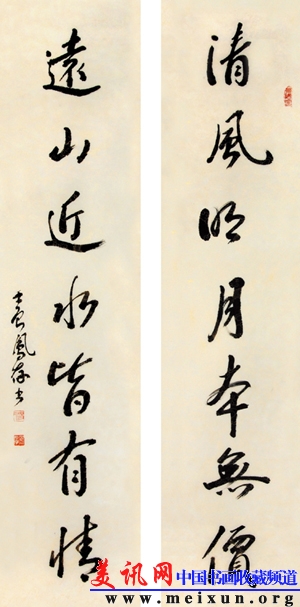 清風明月本無價
遠山近水皆有情
美讯网 中国书画收藏频道
www.meixun.org